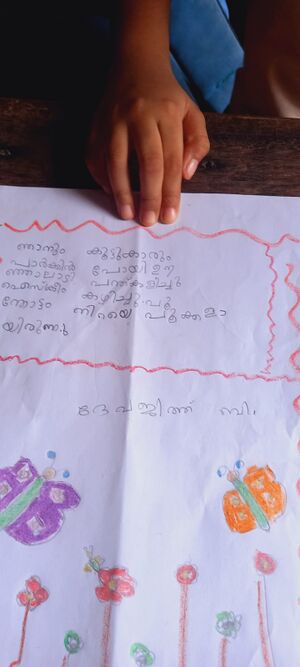 ഞാനും കൂട്ടുകാരും
പാർക്കിൽ പോയി ഊ
ഞ്ഞാലാട്ടി പന്ത്കളിച്ചു
ഐസ്ക്രീം കഴിച്ചു. പൂ
ന്തോട്ടം നിറയെ പൂക്കളാ
യിരുന്നു.
ദേവജിത്ത് ബി.